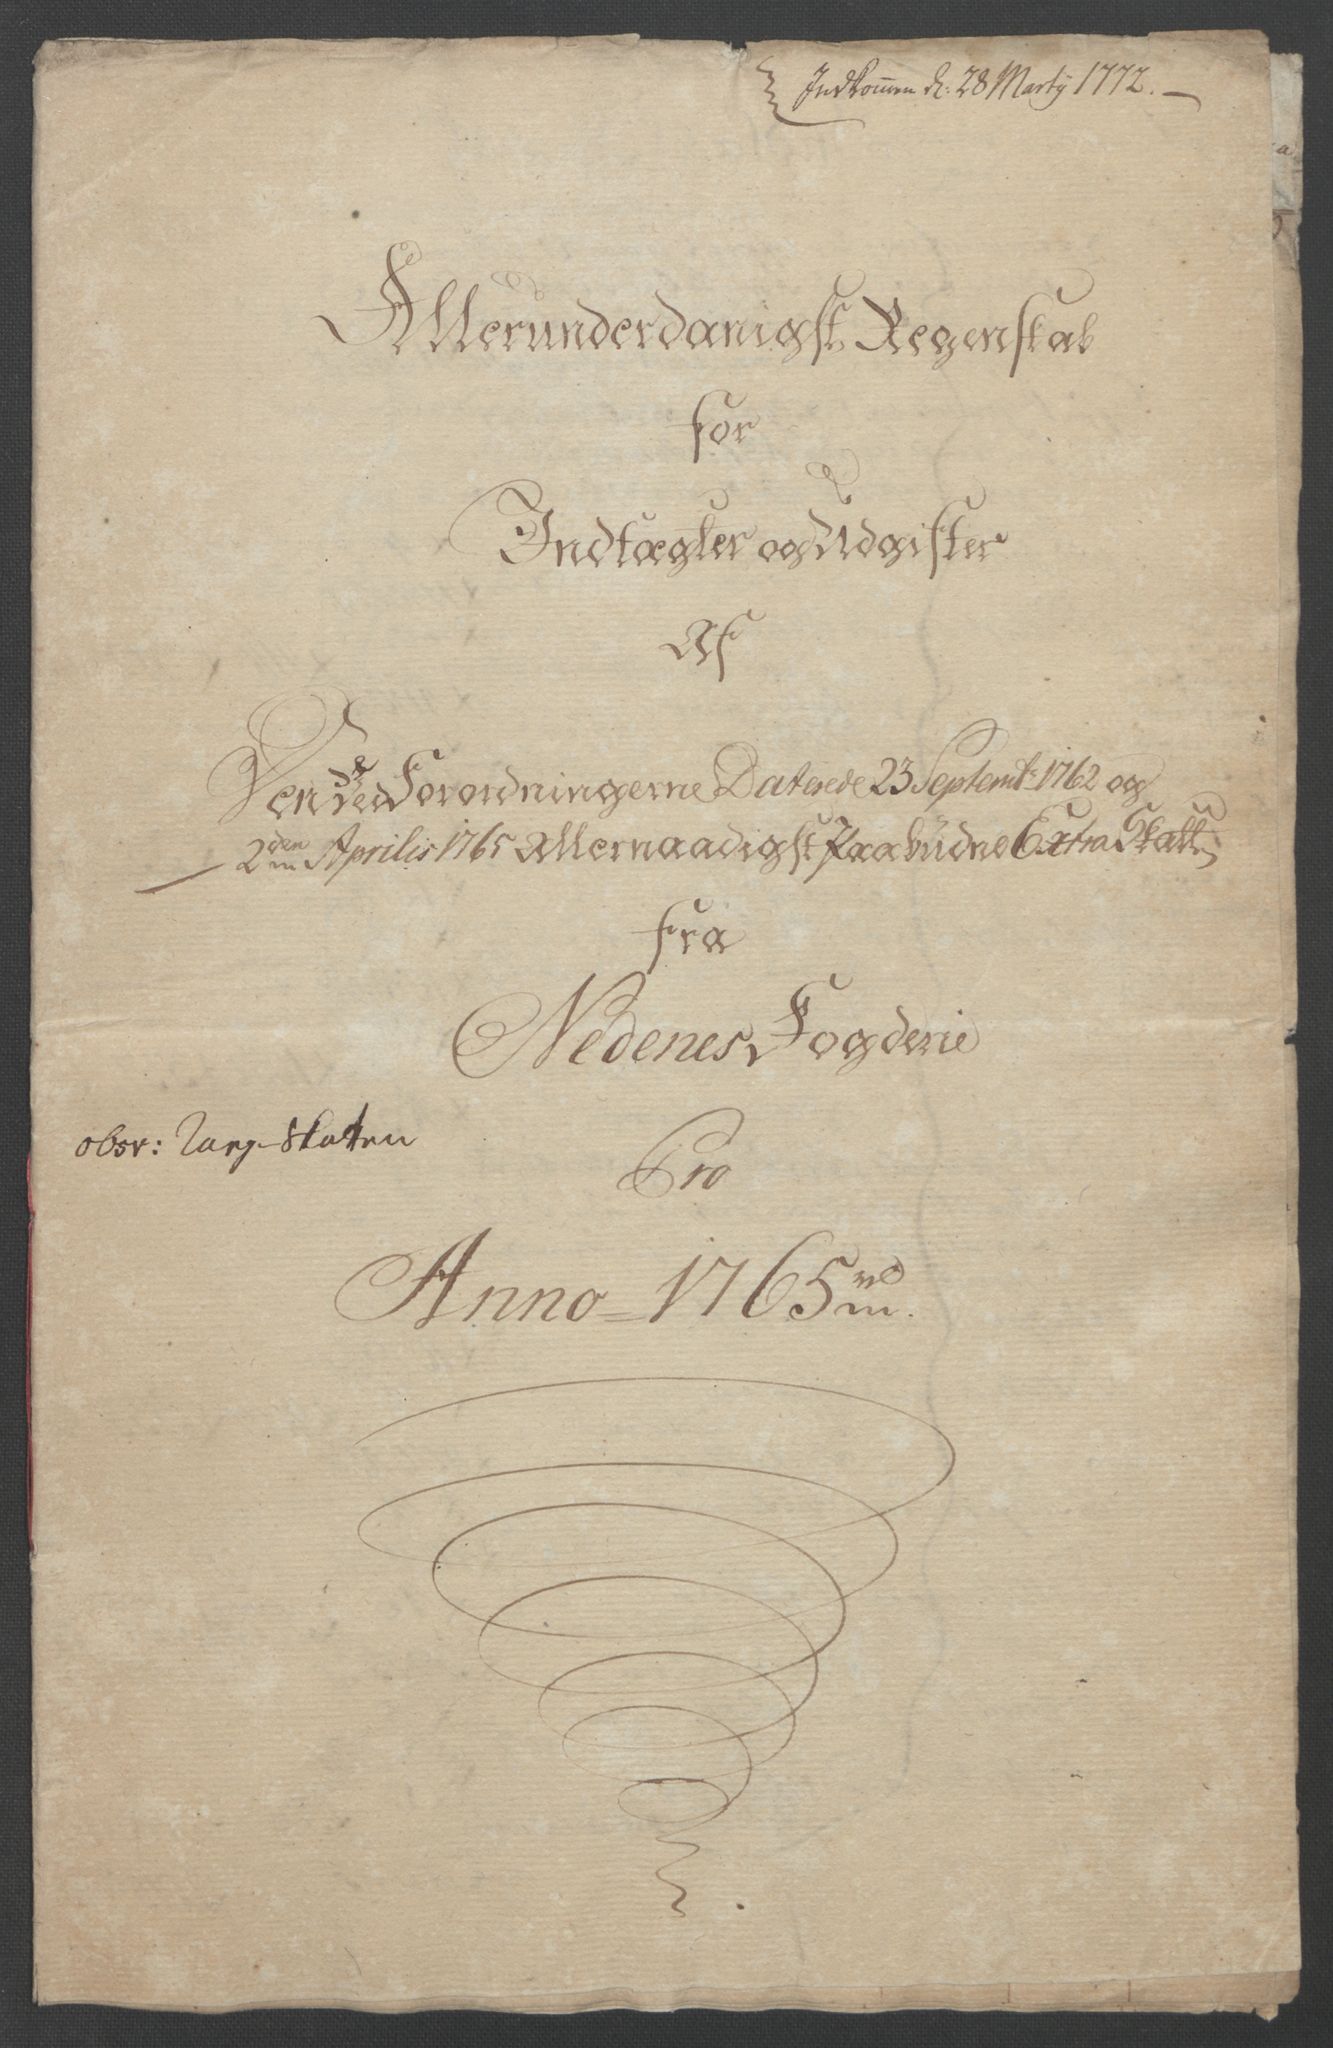 Indkommen d: 28 Martij 1772.
Allerunderdanigst Regenskab
for
Indtægter og Udgifter
Af
Den ved Forordningerne Daterede 23 Septembr 1762 og
2den Aprilis 1765 Allernaadigst Paabudne Extra Skatt,
fra
Nedenes Fogderie
obsr: Skatten
Pro
Anno 1765